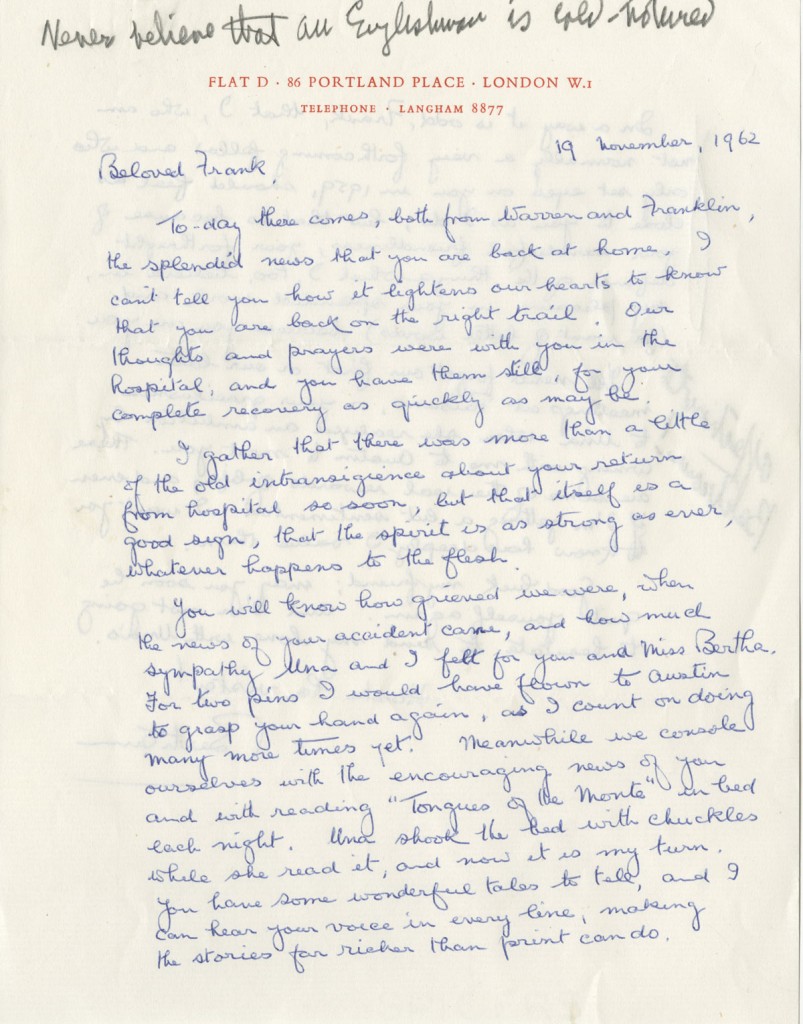 Never believe that an Englishman is cold-natured
FLAT D · 86 PORTLAND PLACE · LONDON W.1
TELEPHONE · LANGHAM 8877
19 November, 1962
Beloved Frank,
To-day there comes, both from Warren and Franklin,
the splendid news that you are back at home. I
can't tell you how it lightens our hearts to know
that you are back on the right trail. Our
thoughts and prayers were with you in the
hospital, and you have them still, for your
complete recovery as quickly as may be.
I gather that there was more than a little
of the old intransigience about your return
from hospital so soon, but that itself is a
good sign, that the spirit is as strong as ever,
whatever happens to the flesh.
You will know how grieved we were, when
the news of your accident came, and how much
sympathy Una and I felt for you and Miss Bertha.
For two pins I would have flown to Austin
to grasp your hand again, as I count on doing
many more times yet. Meanwhile we console
ourselves with the encouraging news of you
and with reading "Tongues of the Monte" in bed
each night. Una shook the bed with chuckles
while she read it, and now it is my turn.
You have some wonderful tales to tell, and I
can hear your voice in every line, making
the stories far richer than print can do.